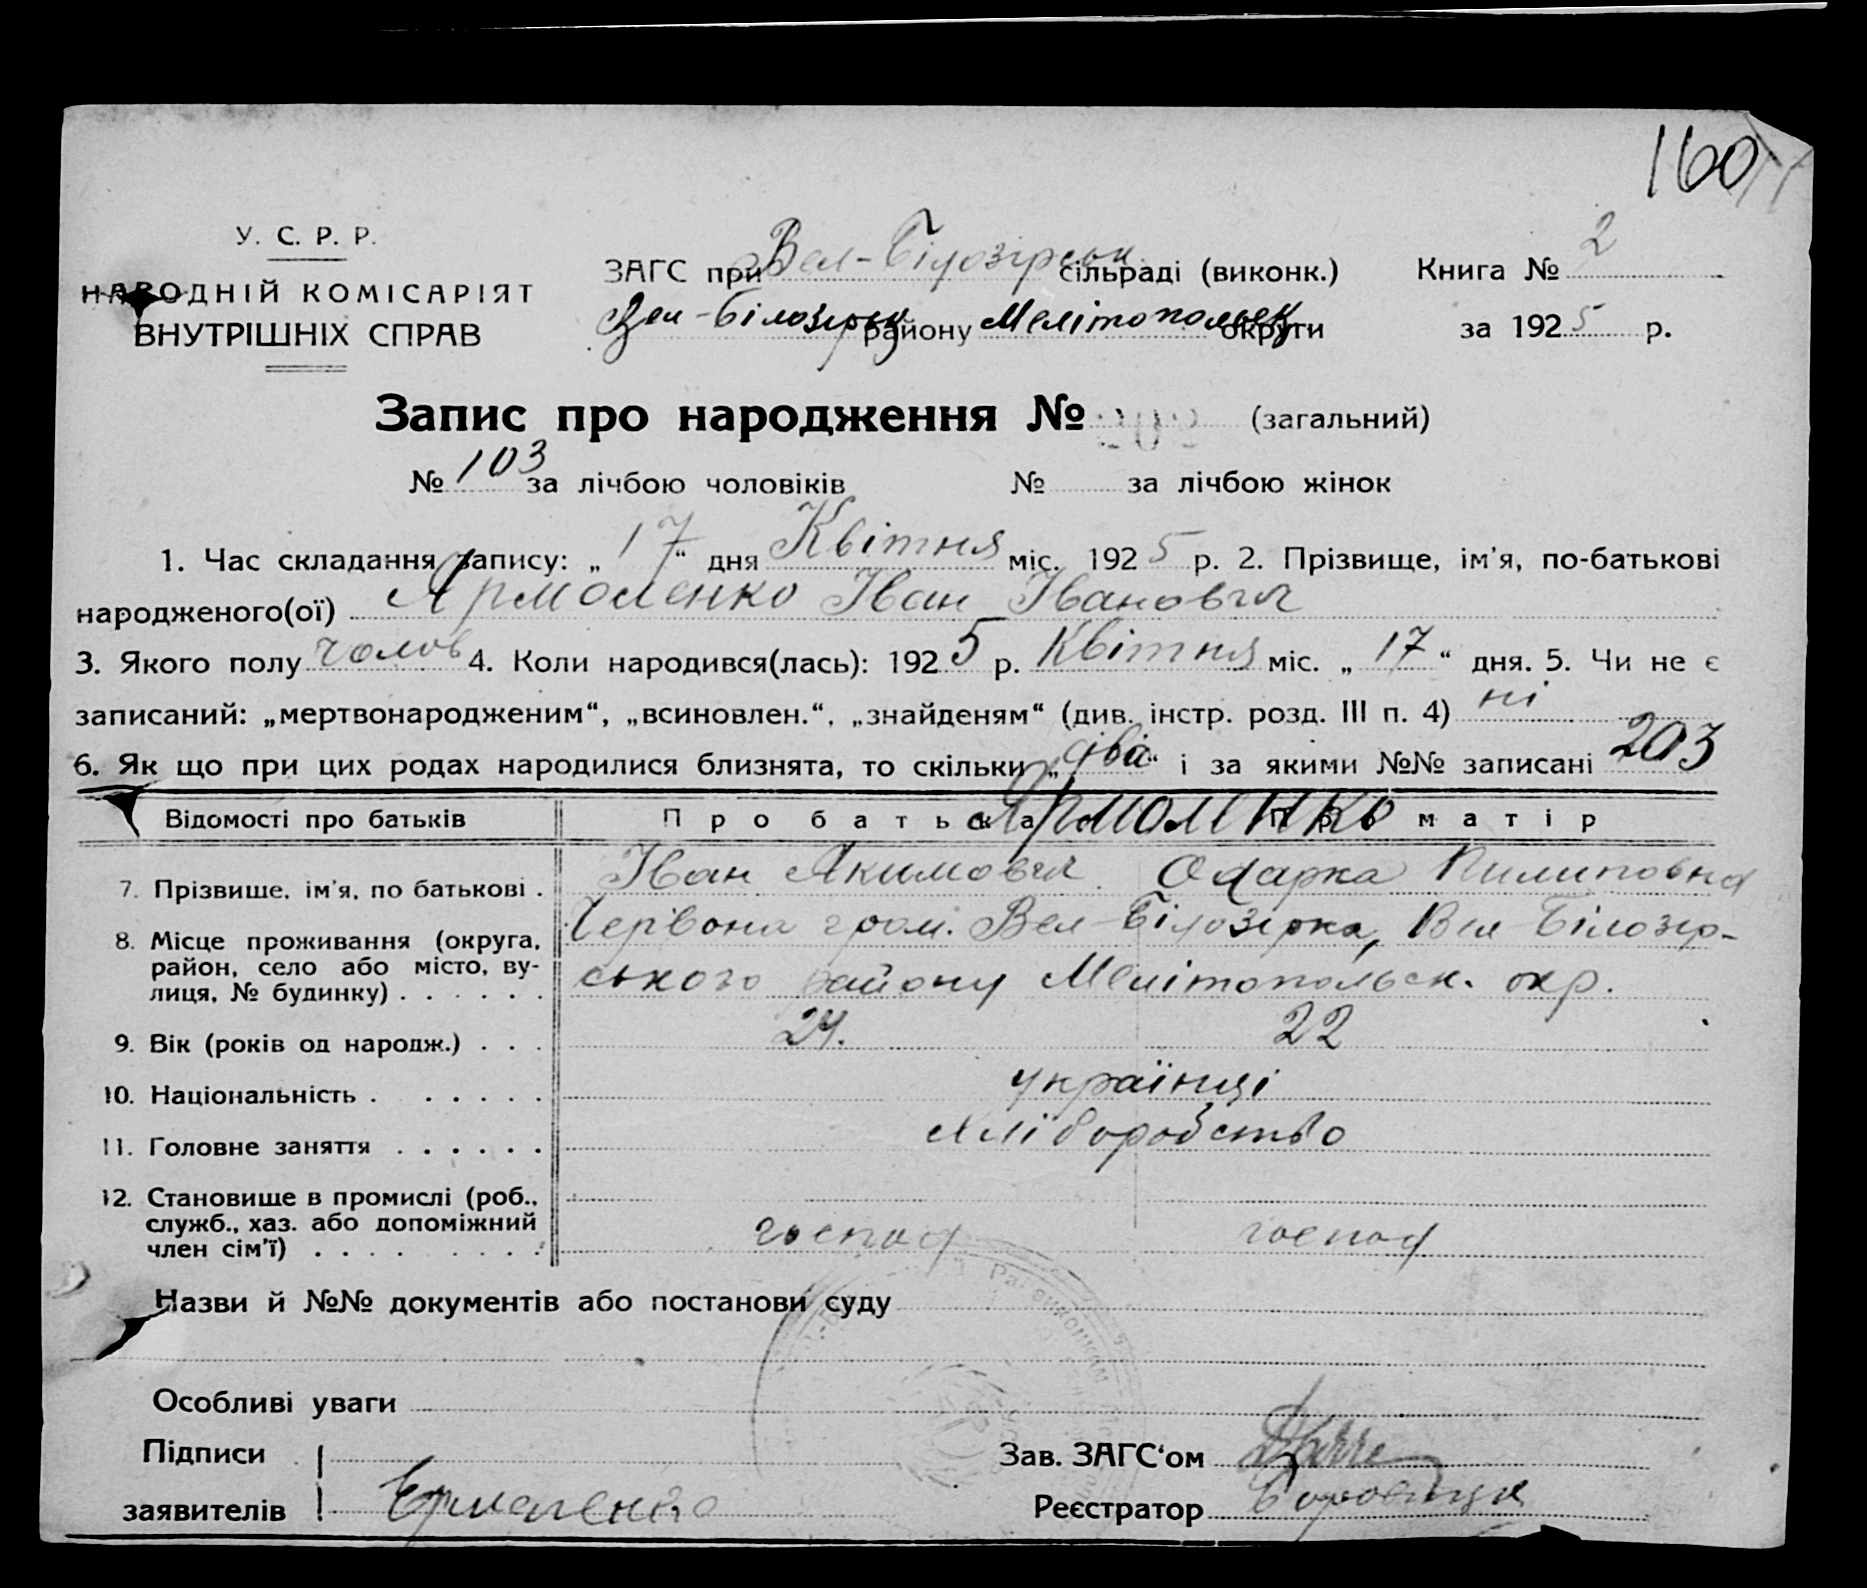 160
У. С. Р. Р.
НАРОДНІЙ КОМІСАРІЯТ
ВНУТРІШНІХ СПРАВ
ЗАГС при Вел-Білозірськ сільраді (виконк.) Книга № 2
Вел-Білозірськ району Мелітопольськ округи за 1925 р.
Запис про народження № 202 (загальний)
№ 103 за лічбою чоловіків № за лічбою жінок
1. Час складання запису: „17“ дня Квітня міс. 1925 р. 2. Прізвище, ім'я, по-батькові
народженого(ої) Ярмоленко Іван Іванович
3. Якого полу чолов 4. Коли народився(лась): 1925 р. Квітня міс. „17“ дня. 5. Чи не є
записаний: „мертвонародженим“, „всиновлен.“, „знайденям“ (див. інстр. розд. III п. 4) ні
6. Як що при цих родах народилися близнята, то скільки „два“ і за якими №№ записані 203
Відомості про батьків Про батька Про матір
Ярмоленко
7. Прізвише, ім'я, по батькові . Іван Якимович Одарка Пилиповна
8. Місце проживання (округа, Червона гром. Вел-Білозірка, Вел-Білозір-
район, село або місто, ву- ського району Мелітопольск. окр.
лиця, № будинку) . . . . . .
9. Вік (років од народж.) . . . 24. 22
10. Національність . . . . . . українці
11. Головне заняття . . . . . . хліборобство
12. Становище в промислі (роб.,
служб., хаз. або допоміжний
член сім'ї) . . . . . . . . . господ господ
Назви й №№ документів або постанови суду
Особливі уваги
Підписи Зав. ЗАГС‘ом
заявителів Ермоленко Реєстратор